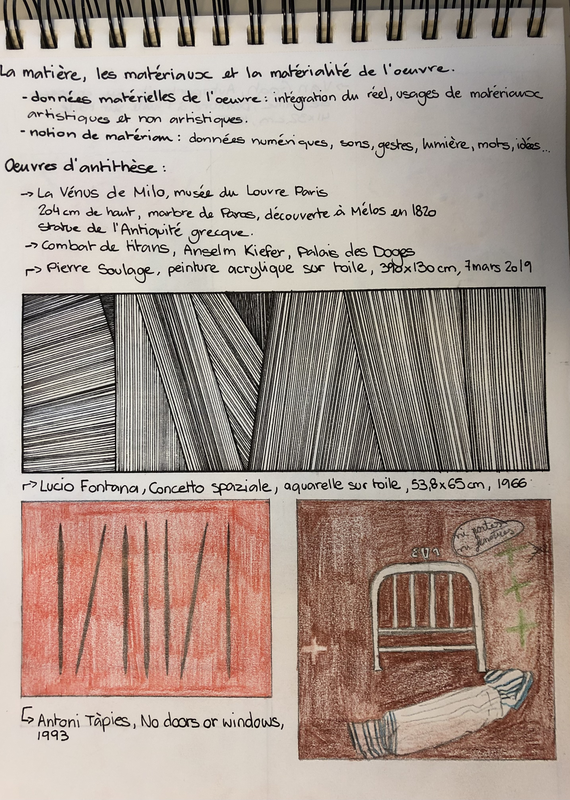 La matière, les matériaux et la matérialité de l'oeuvre.
- données matérielles de l'oeuvre : intégration du réel, usages de matériaux
artistiques et non artistiques.
- notion de matériau : données numériques, sons, gestes, lumière, mots, idées...
Oeuvres d'antithèse :
→ La Vénus de Milo, musée du Louvre Paris
204 cm de haut, marbre de Paros, découverte à Mélos en 1820
statue de l'Antiquité grecque.
→ Combat de titans, Anselm Kiefer, Palais des Doges
→ Pierre Soulage, peinture acrylique sur toile, 390x130 cm, 7 mars 2019
→ Lucio Fontana, Concetto spaziale, aquarelle sur toile, 53,8x65 cm, 1966
ni portes
ni fenêtres
→ Antoni Tàpies, No doors or windows,
1993